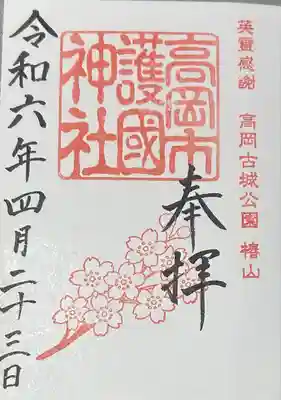 英霊感謝 高岡古城公園 椿山
高岡市
護國
神社
奉拝
令和六年四月二十三日